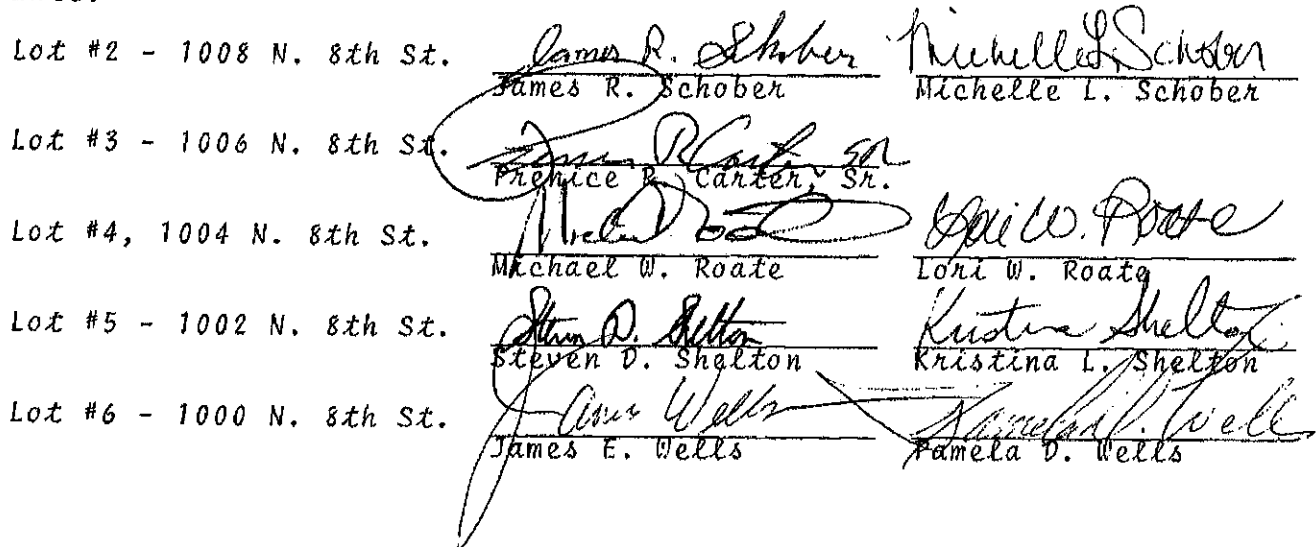 Lot #2 - 1008 N. 8th St. James R. Schober Michelle L. Schober
James R. Schober Michelle L. Schober
Lot #3 - 1006 N. 8th St. R Carter SR
Prenice R. Carter, Sr.
Lot #4, 1004 N. 8th St. Michael Lori W. Roate
Michael W. Roate Lori W. Roate
Lot #5 - 1002 N. 8th St. Steven D. Shelton Kristina Shelton
Steven D. Shelton Kristina L. Shelton
Lot #6 - 1000 N. 8th St. James Wells Pamela D. Wells
James E. Wells Pamela D. Wells